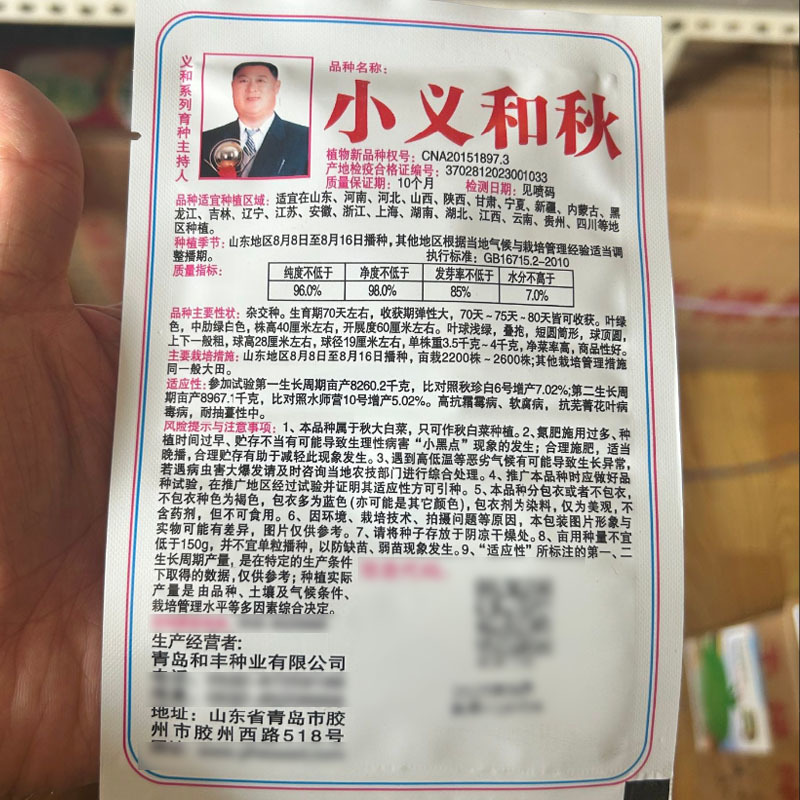 义和系列育种主持人
品种名称:
小义和秋
植物新品种权号: CNA20151897.3
产地检疫合格证编号: 3702812023001033
质量保证期: 10个月 检测日期: 见喷码
品种适宜种植区域: 适宜在山东、河南、河北、山西、陕西、甘肃、宁夏、新疆、内蒙古、黑
龙江、吉林、辽宁、江苏、安徽、浙江、上海、湖南、湖北、江西、云南、贵州、四川等地
区种植。
种植季节: 山东地区8月8日至8月16日播种, 其他地区根据当地气候与栽培管理经验适当调
整播期。 执行标准: GB16715.2-2010
质量指标:
纯度不低于 净度不低于 发芽率不低于 水分不高于
96.0% 98.0% 85% 7.0%
品种主要性状: 杂交种。生育期70天左右, 收获期弹性大, 70天~75天~80天皆可收获。叶绿
色, 中肋绿白色, 株高40厘米左右, 开展度60厘米左右。叶球浅绿, 叠抱, 短圆筒形, 球顶圆,
上下一般粗, 球高28厘米左右, 球径19厘米左右, 单株重3.5千克~4千克, 净菜率高, 商品性好。
主要栽培措施: 山东地区8月8日至8月16日播种, 亩栽2200株~2600株;其他栽培管理措施
同一般大田。
适应性: 参加试验第一生长周期亩产8260.2千克, 比对照秋珍白6号增产7.02%;第二生长周
期亩产8967.1千克, 比对照水师营10号增产5.02%。高抗霜霉病、软腐病, 抗芜菁花叶病
毒病, 耐抽薹性中。
风险提示与注意事项: 1、本品种属于秋大白菜, 只可作秋白菜种植。2、氮肥施用过多、种
植时间过早、贮存不当有可能导致生理性病害“小黑点”现象的发生; 合理施肥, 适当
晚播, 合理贮存有助于减轻此现象发生。3、遇到高低温等恶劣气候有可能导致生长异常,
若遇病虫害大爆发请及时咨询当地农技部门进行综合处理。4、推广本品种时应做好品
种试验, 在推广地区经过试验并证明其适应性方可引种。5、本品种分包衣或者不包衣,
不包衣种色为褐色, 包衣多为蓝色(亦可能是其它颜色), 包衣剂为染料, 仅为美观, 不
含药剂, 但不可食用。6、因环境、栽培技术、拍摄问题等原因, 本包装图片形象与
实物可能有差异, 图片仅供参考。7、请将种子存放于阴凉干燥处。8、亩用种量不宜
低于150g, 并不宜单粒播种, 以防缺苗、弱苗现象发生。9、“适应性”所标注的第一、二
生长周期产量, 是在特定的生产条件
下取得的数据, 仅供参考; 种植实际
产量是由品种、土壤及气候条件、
栽培管理水平等多因素综合决定。
生产经营者:
青岛和丰种业有限公司
地址: 山东省青岛市胶
州市胶州西路518号